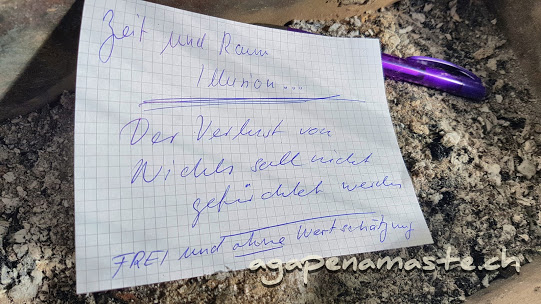 Zeit und Raum
Illusion...
Der Verlust von
Nichts soll nicht
gefürchtet werden
FREI und ohne Wertschätzung
agapenamaste.ch